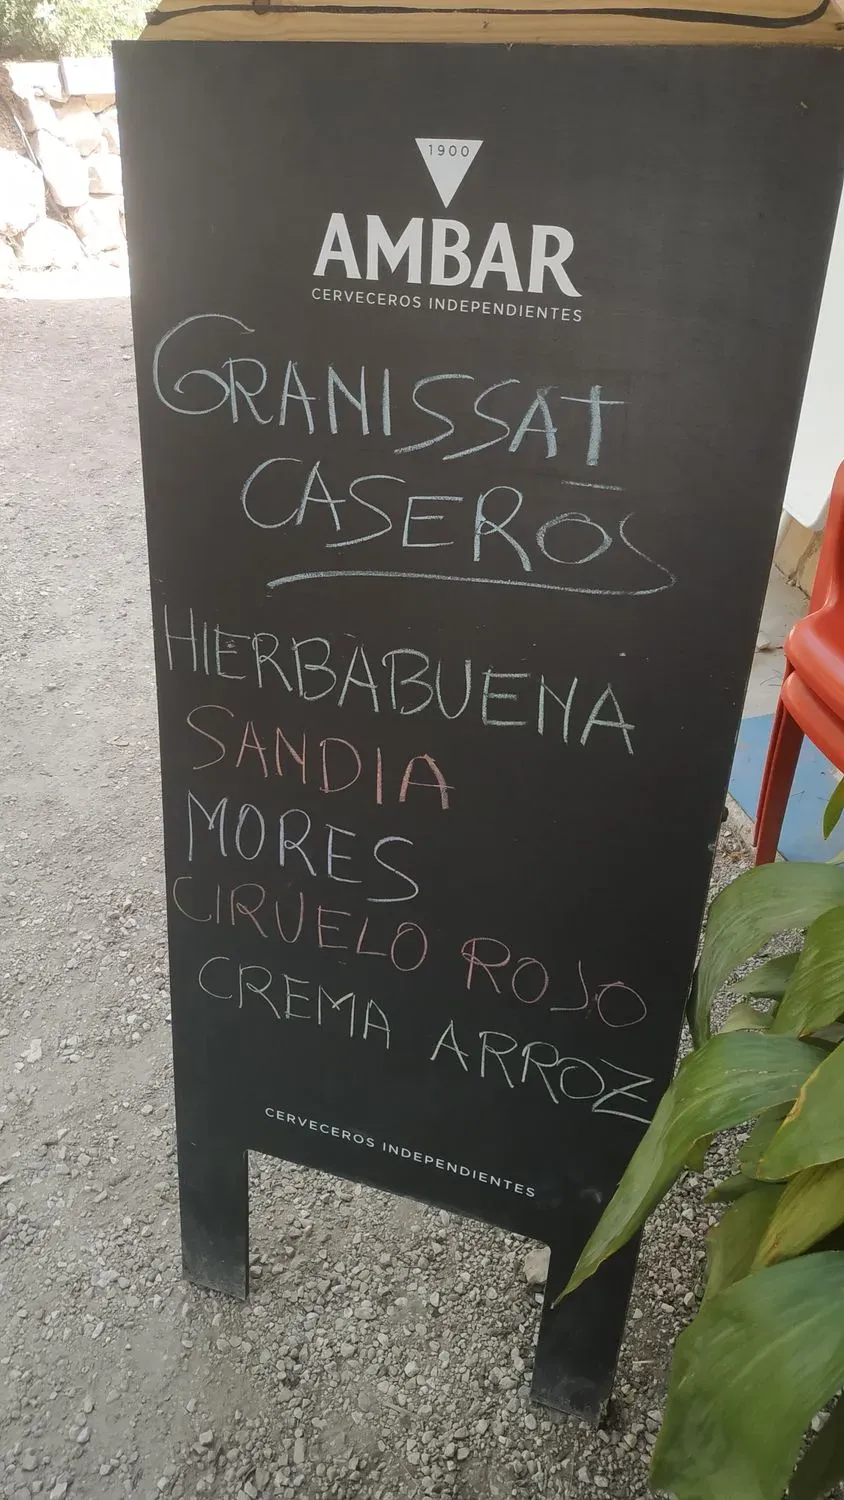 1900
AMBAR
CERVECEROS INDEPENDIENTES
GRANISSAT
CASEROS
HIERBABUENA
SANDIA
MORES
CIRUELO ROJO
CREMA ARROZ
CERVECEROS INDEPENDIENTES